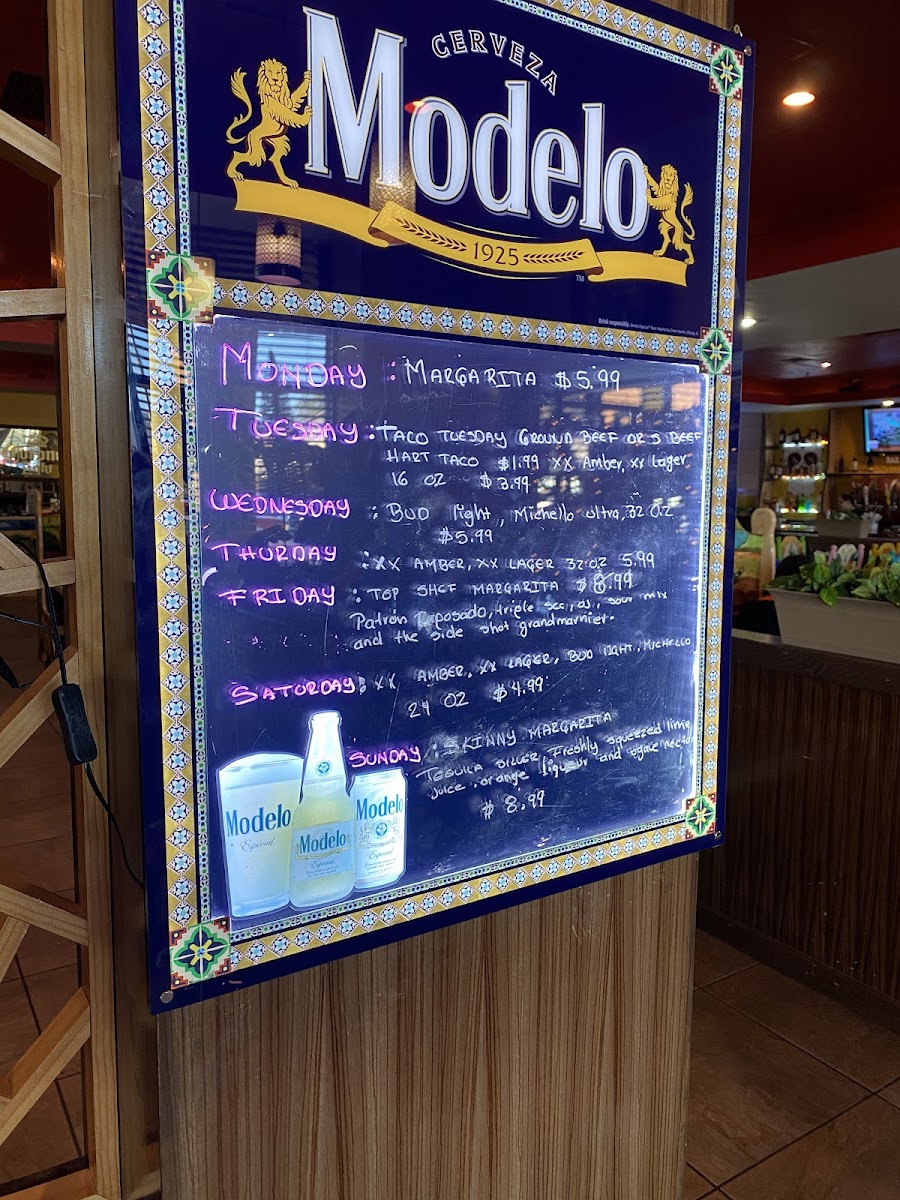 CERVEZA
Modelo
1925
TM
Drink responsibly.
MONDAY : MARGARITA $5.99
TUESDAY : TACO TUESDAY GROUND BEEF OR S BEEF
HART TACO $1.99 XX Amber, xx Lager
16 OZ $3.99
WEDNESDAY : BUD light, Michello ultra, 32 OZ
$5.99
THURDAY : XX AMBER, XX LAGER 32 OZ 5.99
FRIDAY : TOP SHOT MARGARITA $8.99
Patrón Reposado, triple sec, sour mix
and the side shot grandmarnier.
SATURDAY : XX AMBER, XX LAGER, BUD light, MICHELLO
24 OZ $4.99
SUNDAY : SKINNY MARGARITA
TEQUILA SILVER, Freshly squeezed lime
juice, orange liqueur and agave nectar
$8.99
Modelo
Especial
Modelo
Especial
Modelo
Especial